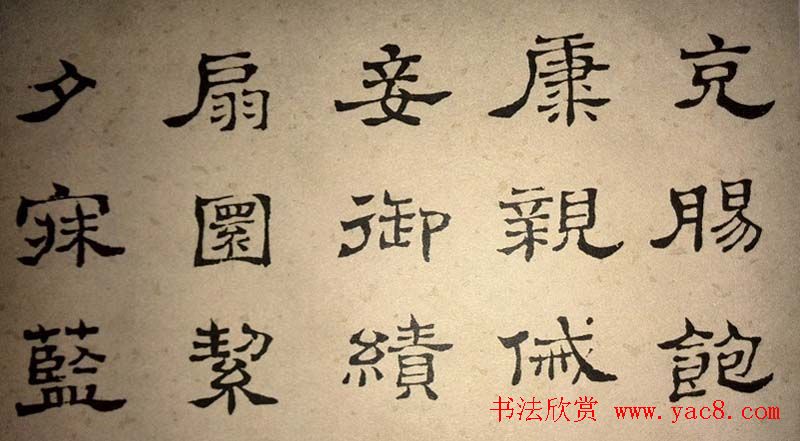 充腸飽
康親傶
妾御績
扇圜絜
夕寐藍
书法欣赏 www.yac8.com